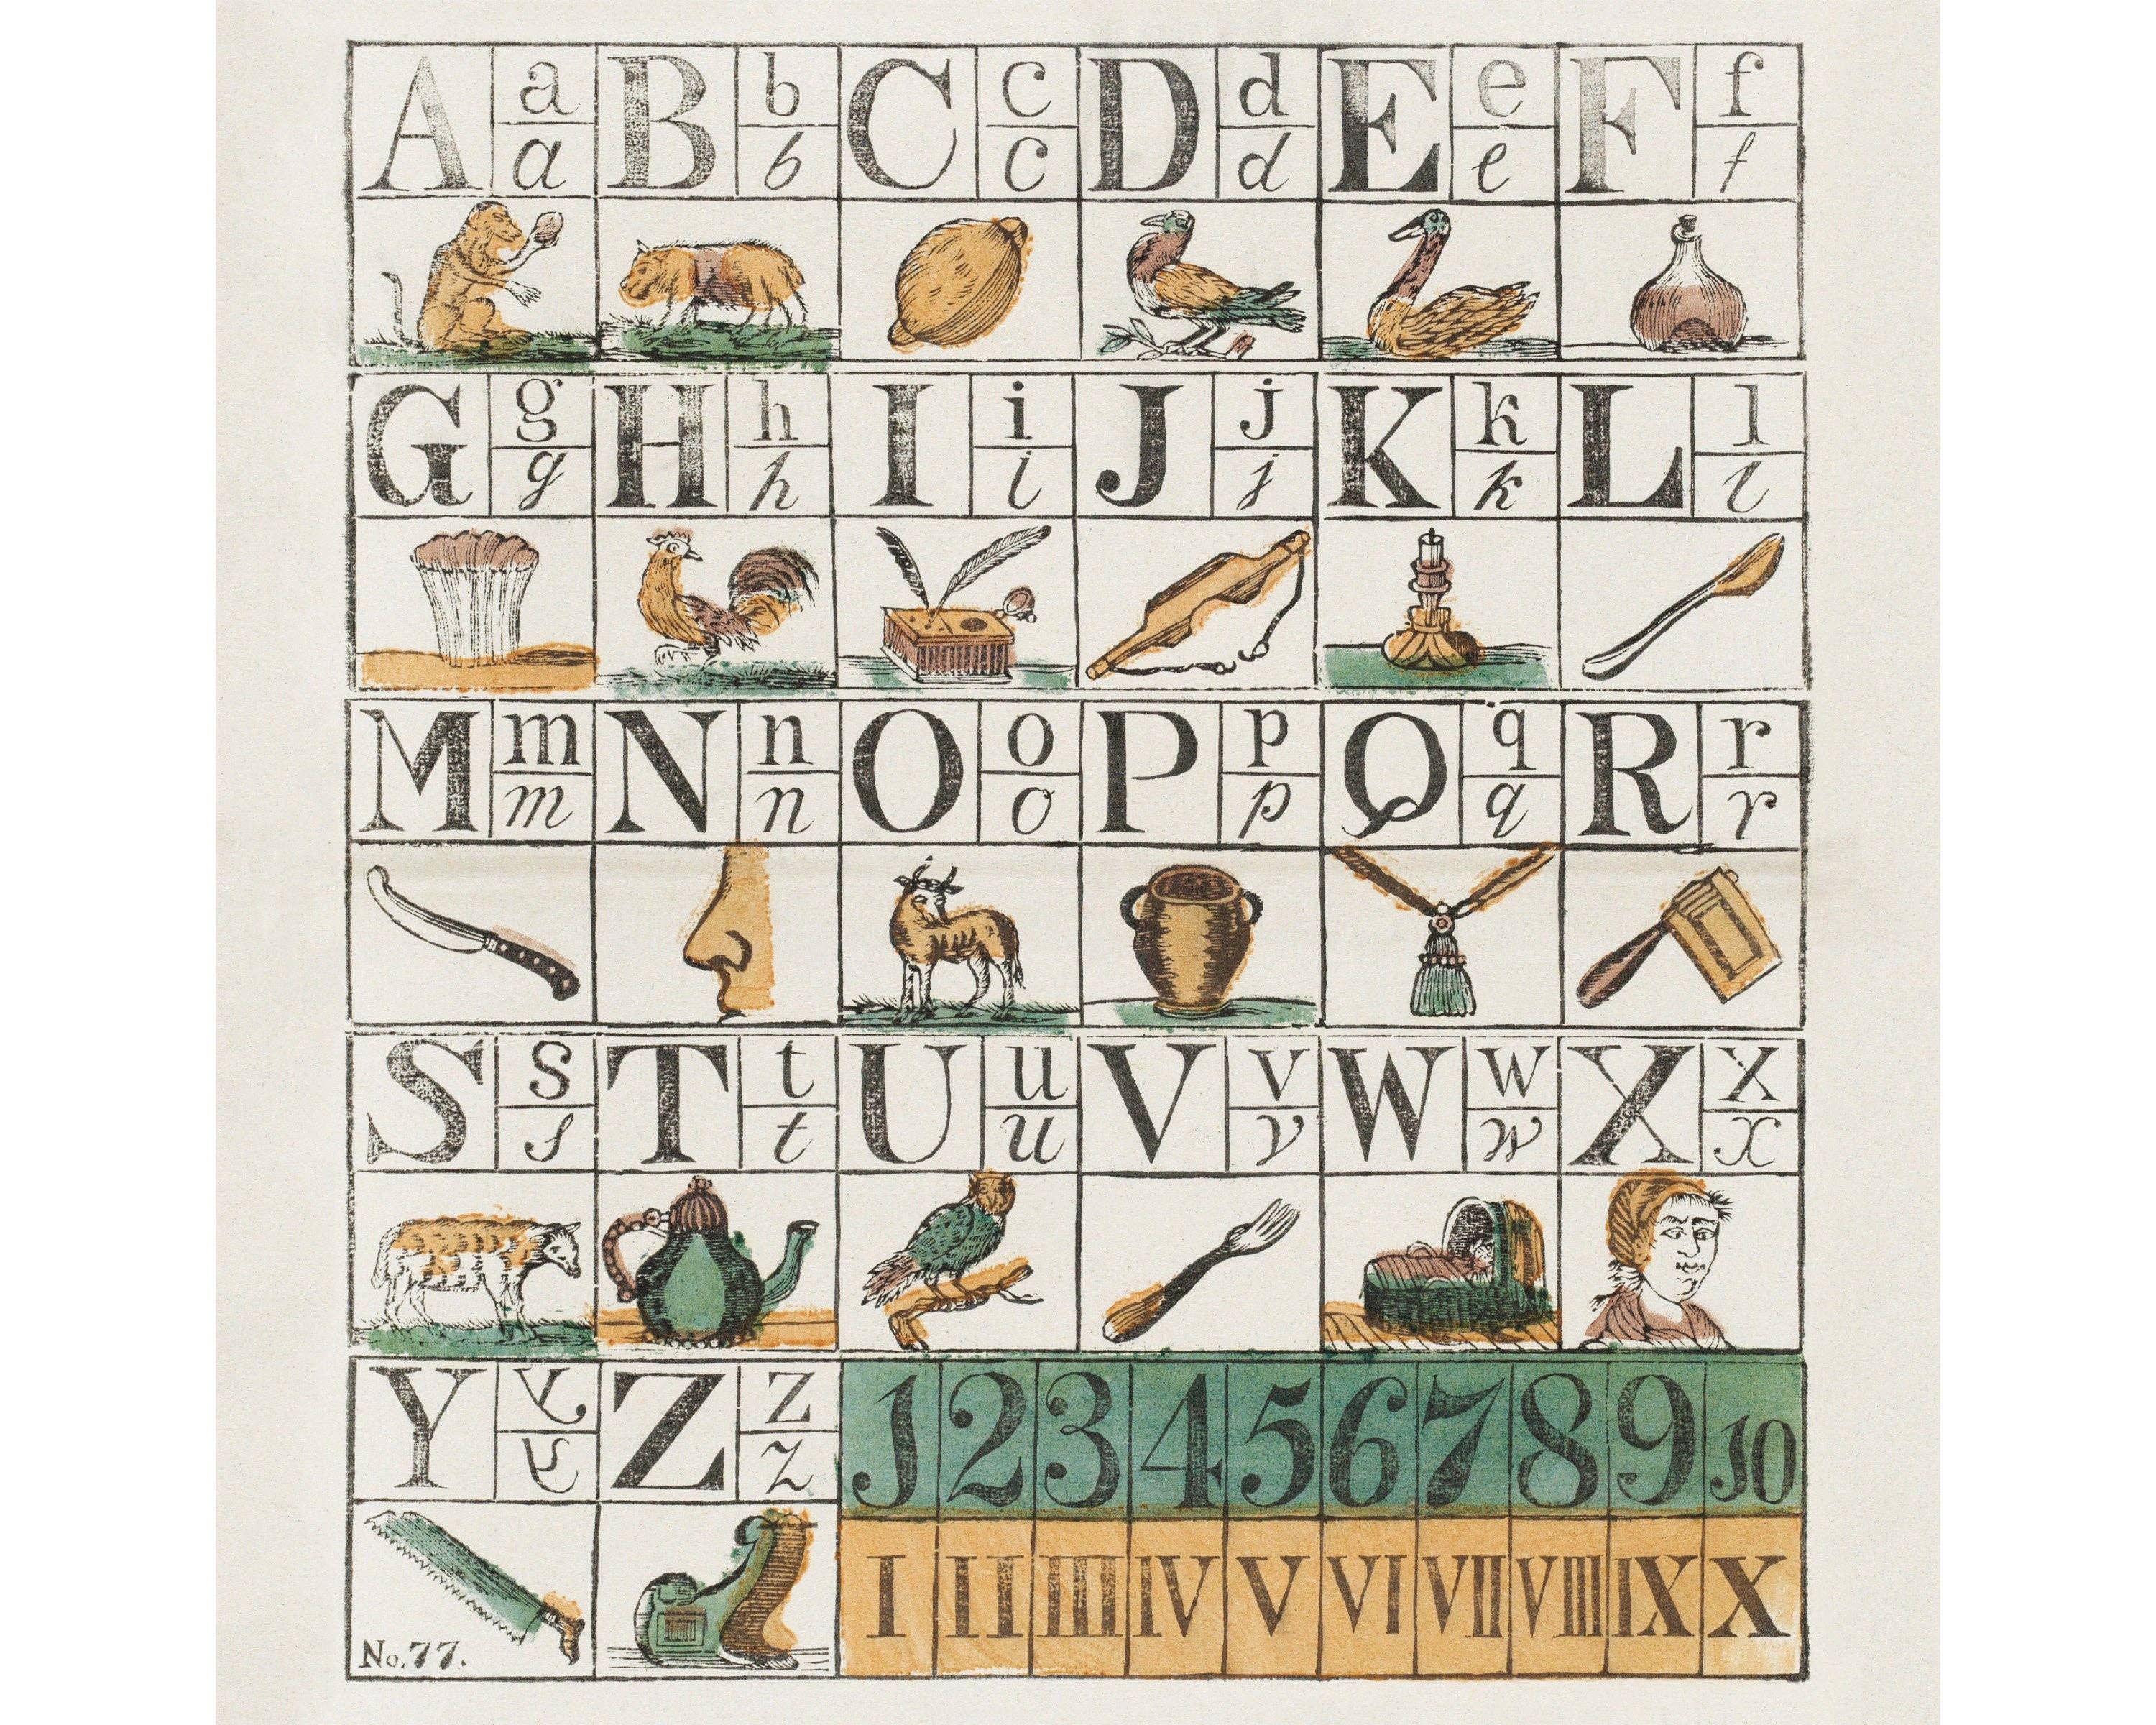 A a B b C c D d E e F f
a b c d e f
G g H h I i J j K k L l
g h i j k l
M m N n O o P p Q q R r
m n o p q r
S s T t U u V v W w X x
s t u v w x
Y y Z z 1 2 3 4 5 6 7 8 9 10
y z
I II III IV V VI VII VIII IX X
No. 77.